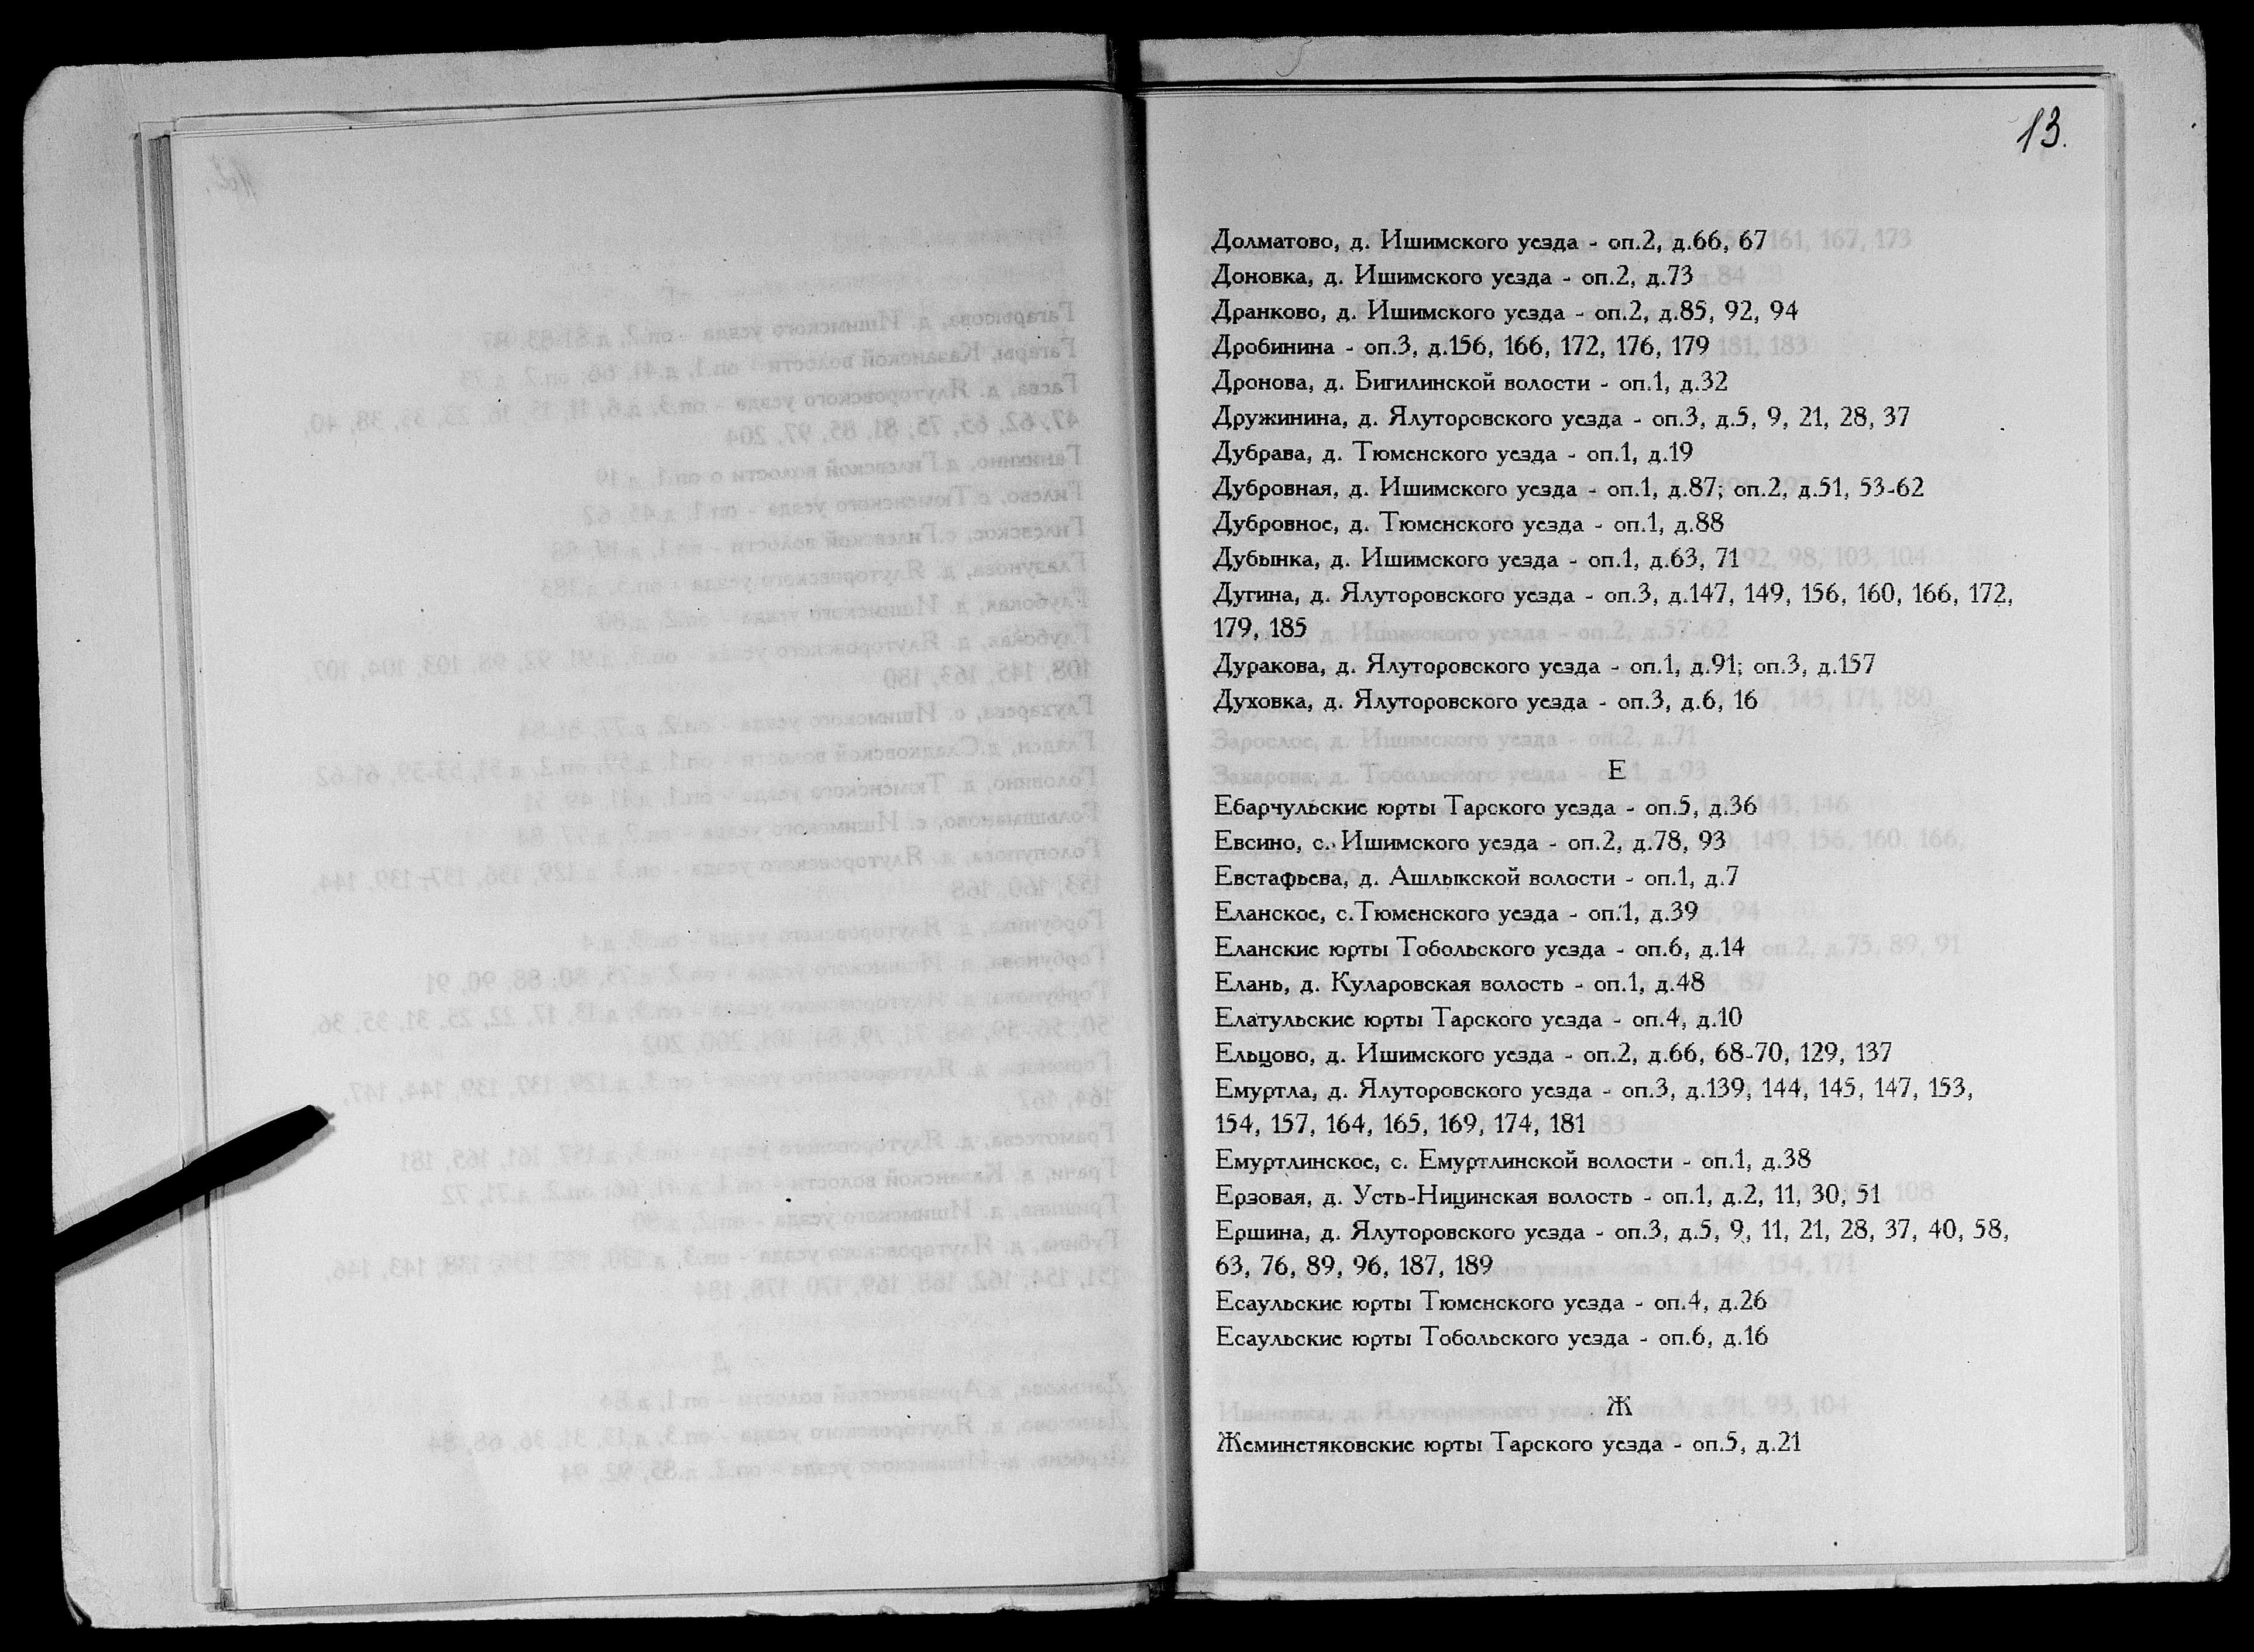 13.
Долматово, д. Ишимского уезда - оп.2, д.66, 67
Доновка, д. Ишимского уезда - оп.2, д.73
Дранково, д. Ишимского уезда - оп.2, д.85, 92, 94
Дробинина - оп.3, д.156, 166, 172, 176, 179
Дронова, д. Бигилинской волости - оп.1, д.32
Дружинина, д. Ялуторовского уезда - оп.3, д.5, 9, 21, 28, 37
Дубрава, д. Тюменского уезда - оп.1, д.19
Дубровная, д. Ишимского уезда - оп.1, д.87; оп.2, д.51, 53-62
Дубровное, д. Тюменского уезда - оп.1, д.88
Дубынка, д. Ишимского уезда - оп.1, д.63, 71
Дугина, д. Ялуторовского уезда - оп.3, д.147, 149, 156, 160, 166, 172,
179, 185
Дуракова, д. Ялуторовского уезда - оп.1, д.91; оп.3, д.157
Духовка, д. Ялуторовского уезда - оп.3, д.6, 16
Е
Ебарчульские юрты Тарского уезда - оп.5, д.36
Евсино, с. Ишимского уезда - оп.2, д.78, 93
Евстафьева, д. Ашлыкской волости - оп.1, д.7
Еланское, с.Тюменского уезда - оп.1, д.39
Еланские юрты Тобольского уезда - оп.6, д.14
Елань, д. Куларовская волость - оп.1, д.48
Елатульские юрты Тарского уезда - оп.4, д.10
Ельцово, д. Ишимского уезда - оп.2, д.66, 68-70, 129, 137
Емуртла, д. Ялуторовского уезда - оп.3, д.139, 144, 145, 147, 153,
154, 157, 164, 165, 169, 174, 181
Емуртлинское, с. Емуртлинской волости - оп.1, д.38
Ерзовая, д. Усть-Ницинская волость - оп.1, д.2, 11, 30, 51
Ершина, д. Ялуторовского уезда - оп.3, д.5, 9, 11, 21, 28, 37, 40, 58,
63, 76, 89, 96, 187, 189
Есаульские юрты Тюменского уезда - оп.4, д.26
Есаульские юрты Тобольского уезда - оп.6, д.16
Ж
Жеминетяковские юрты Тарского уезда - оп.5, д.21